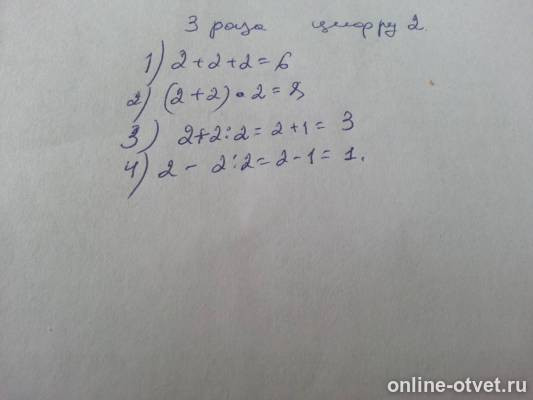 3 раза цифру 2.
1) 2+2+2=6
2) (2+2)•2=8
3) 2+2:2=2+1= 3
4) 2- 2:2=2-1=1.
online-otvet.ru